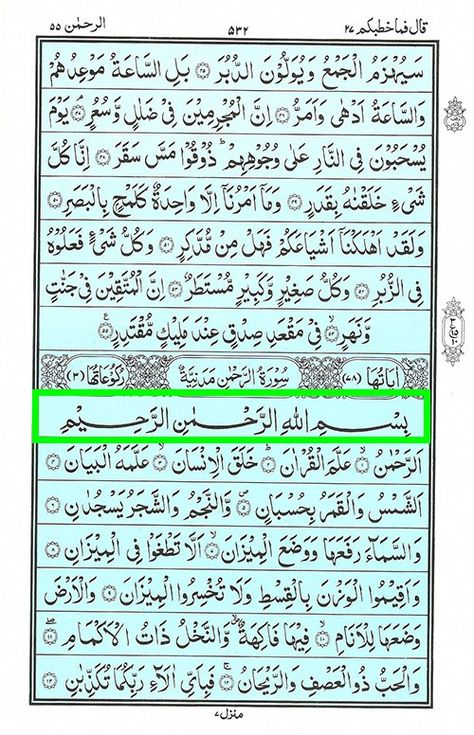 قال فما خطبكم ٢٧ ٥٣٢ الرحمٰن ٥٥
سَيُهْزَمُ الْجَمْعُ وَيُوَلُّوْنَ الدُّبُرَ ۝۴۵ بَلِ السَّاعَةُ مَوْعِدُهُمْ
وَالسَّاعَةُ اَدْهٰى وَاَمَرُّ ۝۴۶ اِنَّ الْمُجْرِمِيْنَ فِيْ ضَلٰلٍ وَّسُعُرٍ ۝۴۷ يَوْمَ
يُسْحَبُوْنَ فِي النَّارِ عَلٰى وُجُوْهِهِمْ ؕ ذُوْقُوْا مَسَّ سَقَرَ ۝۴۸ اِنَّا كُلَّ
شَيْءٍ خَلَقْنٰهُ بِقَدَرٍ ۝۴۹ وَمَاۤ اَمْرُنَاۤ اِلَّا وَاحِدَةٌ كَلَمْحٍۢ بِالْبَصَرِ ۝۵۰
وَلَقَدْ اَهْلَكْنَاۤ اَشْيَاعَكُمْ فَهَلْ مِنْ مُّدَّكِرٍ ۝۵۱ وَكُلُّ شَيْءٍ فَعَلُوْهُ
فِي الزُّبُرِ ۝۵۲ وَكُلُّ صَغِيْرٍ وَّكَبِيْرٍ مُّسْتَطَرٌ ۝۵۳ اِنَّ الْمُتَّقِيْنَ فِيْ جَنّٰتٍ
وَّنَهَرٍ ۝۵۴ فِيْ مَقْعَدِ صِدْقٍ عِنْدَ مَلِيْكٍ مُّقْتَدِرٍ ۝۵۵
اٰيَاتُهَا (٧٨) سُوْرَةُ الرَّحْمٰنِ مَدَنِيَّةٌ رُكُوْعَاتُهَا (٣)
بِسْمِ اللهِ الرَّحْمٰنِ الرَّحِيْمِ
اَلرَّحْمٰنُ ۝۱ عَلَّمَ الْقُرْاٰنَ ۝۲ خَلَقَ الْاِنْسَانَ ۝۳ عَلَّمَهُ الْبَيَانَ ۝۴
اَلشَّمْسُ وَالْقَمَرُ بِحُسْبَانٍ ۝۵ وَّالنَّجْمُ وَالشَّجَرُ يَسْجُدٰنِ ۝۶
وَالسَّمَآءَ رَفَعَهَا وَوَضَعَ الْمِيْزَانَ ۝۷ اَلَّا تَطْغَوْا فِي الْمِيْزَانِ ۝۸
وَاَقِيْمُوا الْوَزْنَ بِالْقِسْطِ وَلَا تُخْسِرُوا الْمِيْزَانَ ۝۹ وَالْاَرْضَ
وَضَعَهَا لِلْاَنَامِ ۝۱۰ فِيْهَا فَاكِهَةٌ وَّالنَّخْلُ ذَاتُ الْاَكْمَامِ ۝۱۱
وَالْحَبُّ ذُو الْعَصْفِ وَالرَّيْحَانُ ۝۱۲ فَبِاَيِّ اٰلَآءِ رَبِّكُمَا تُكَذِّبٰنِ ۝۱۳
منزل ٧